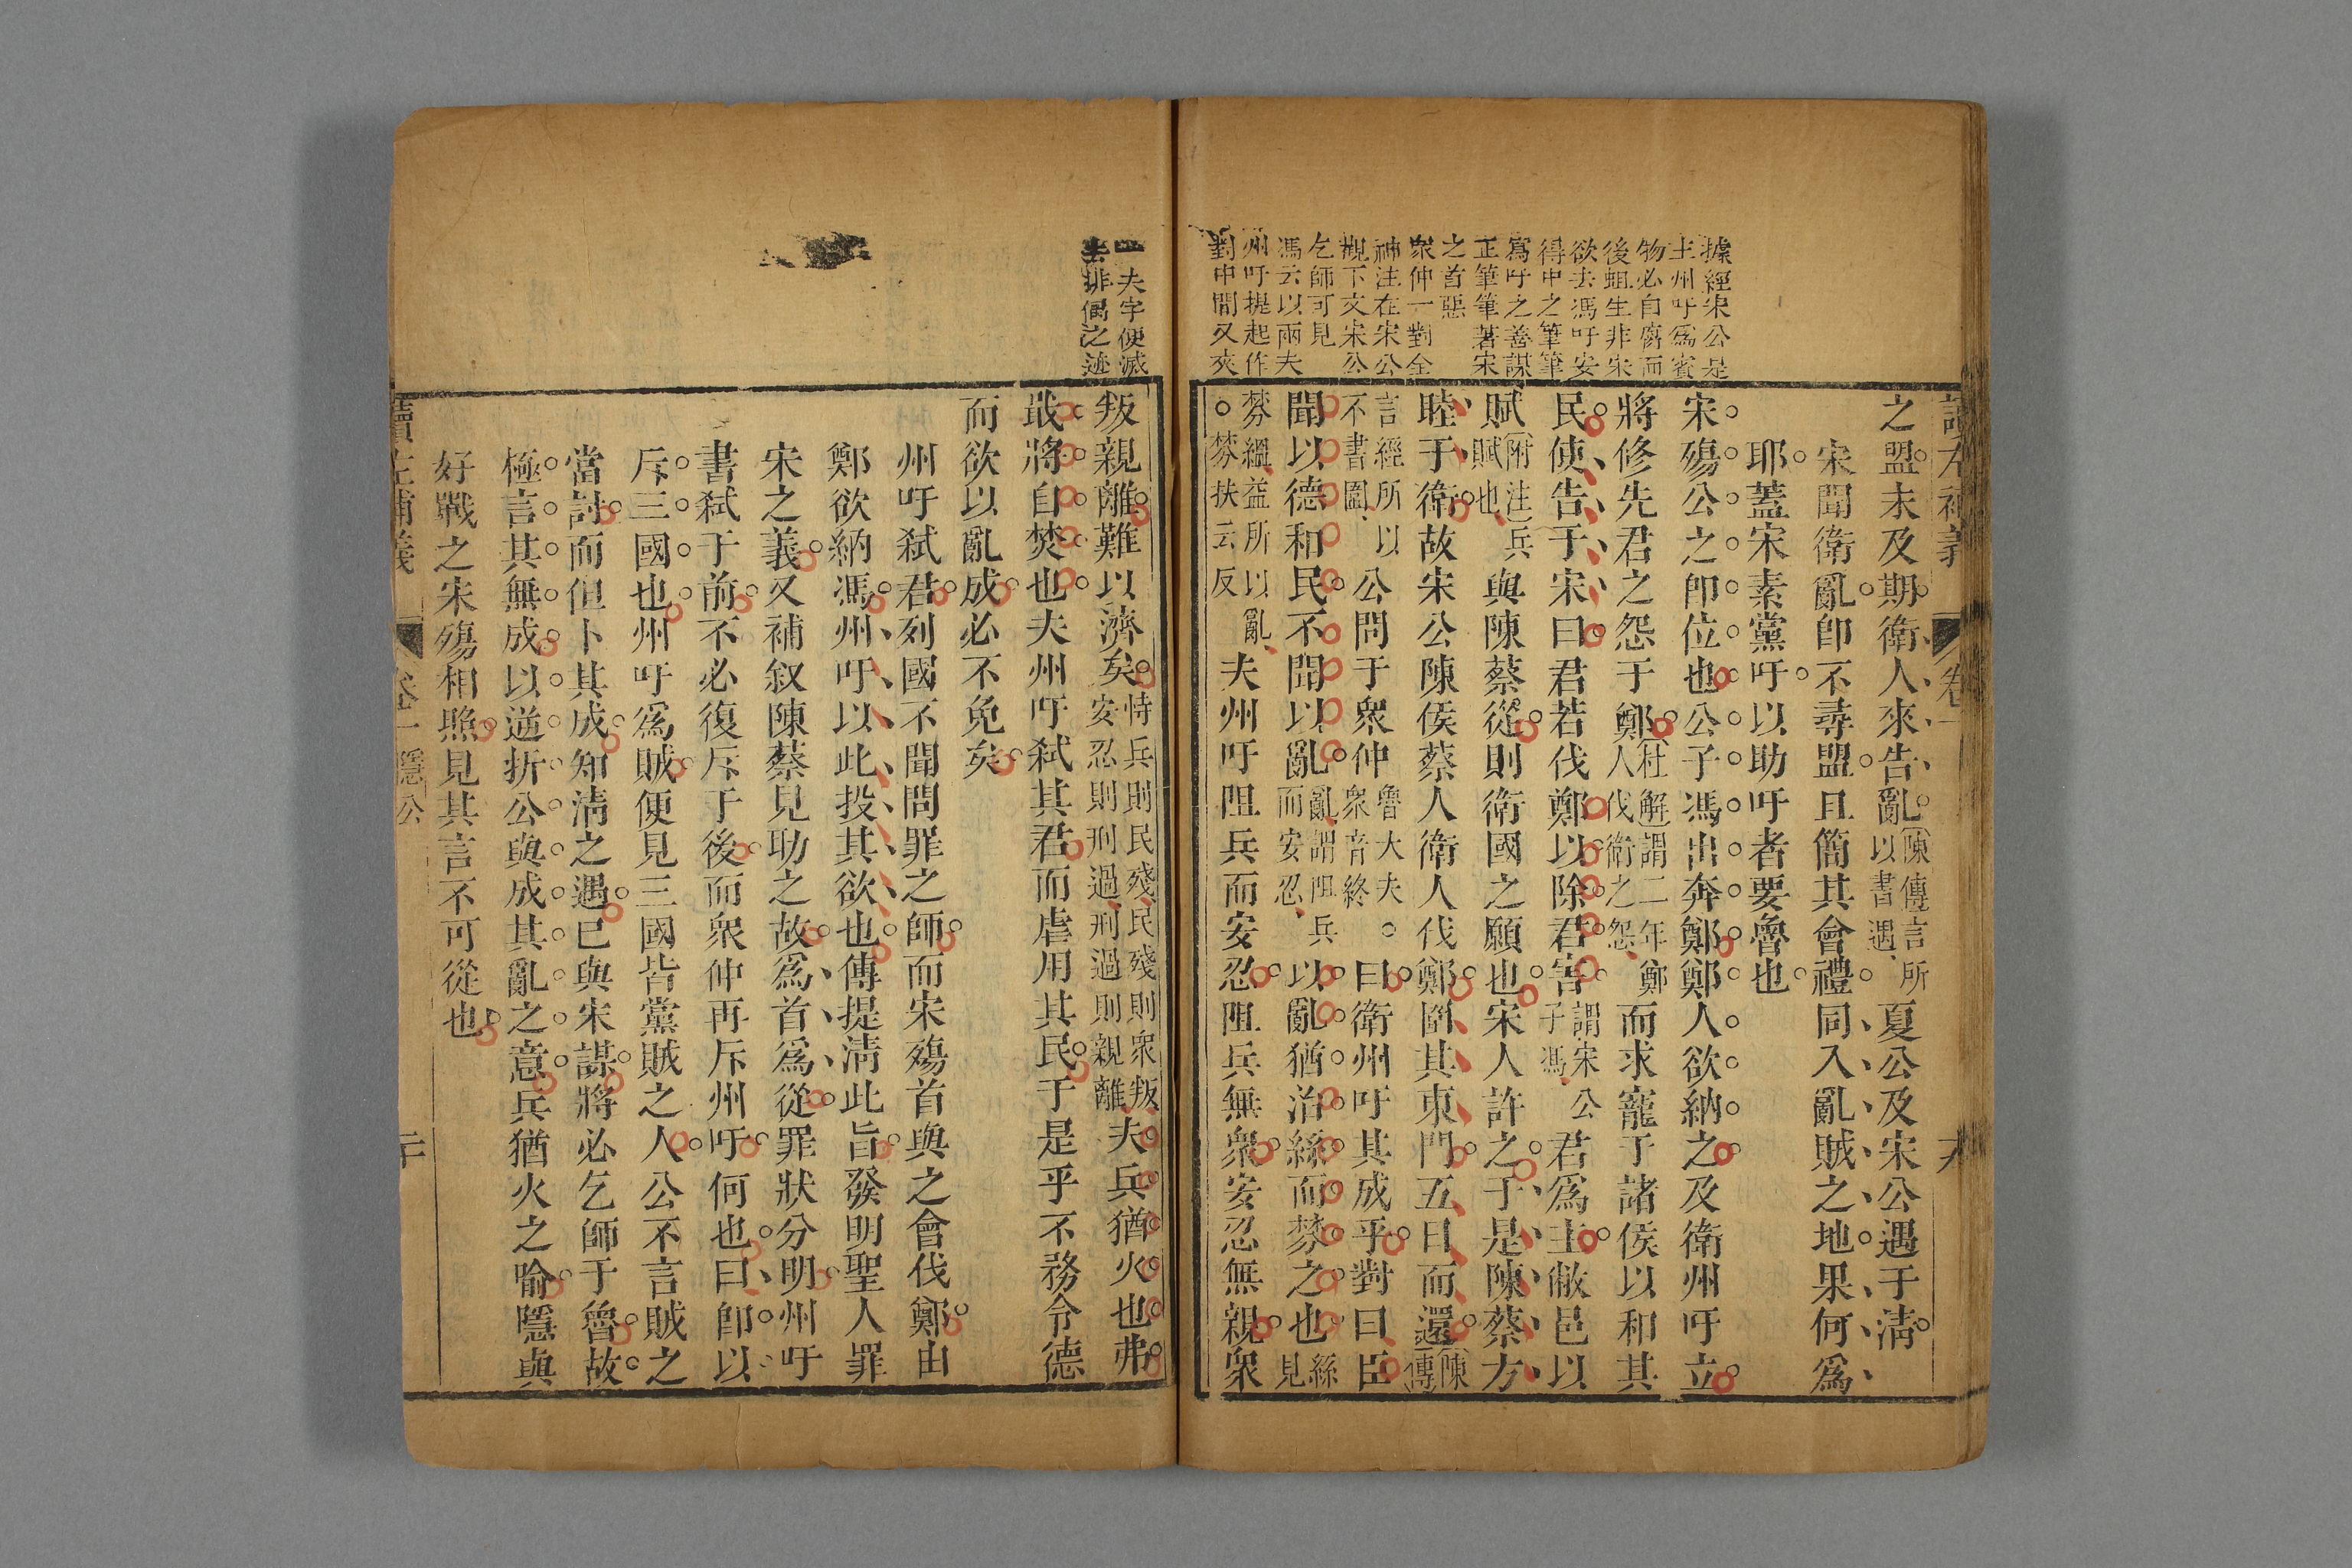 據經宋公是
主州吁爲賓
物必自腐而
後蛆生非宋
欲去馮吁安
得中之筆筆
寫吁之善謀
正筆筆著宋
之首惡
衆仲一對全
神注在宋公
觀下文宋公
乞師可見
馮云以兩夫
州吁提起作
對中間又夾
讀左補義 卷一
之盟未及期衛人來告亂陳傳言所以書遇夏公及宋公遇于清
宋聞衛亂卽不尋盟且簡其會禮同入亂賊之地果何爲
耶蓋宋素黨吁以助吁者要魯也
宋殤公之卽位也公子馮出奔鄭鄭人欲納之及衛州吁立
將修先君之怨于鄭杜解謂二年鄭人伐衛之怨而求寵于諸侯以和其
民使告于宋曰君若伐鄭以除君害謂宋公子馮君爲主敝邑以
賦附注兵賦也與陳蔡從則衛國之願也宋人許之于是陳蔡方
睦于衛故宋公陳侯蔡人衛人伐鄭圍其東門五日而還陳傳
言經所以不書圍公問于衆仲魯大夫。衆音終曰衛州吁其成乎對曰臣
聞以德和民不聞以亂亂謂阻兵而安忍以亂猶治絲而棼之也絲見
棼縕益所以亂。棼扶云反夫州吁阻兵而安忍阻兵無衆安忍無親衆
一夫字便滅
去排偶之迹
叛親離難以濟矣恃兵則民殘民殘則衆叛安忍則刑過刑過則親離夫兵猶火也弗
戢將自焚也夫州吁弒其君而虐用其民于是乎不務令德
而欲以亂成必不免矣
州吁弒君列國不聞問罪之師而宋殤首與之會伐鄭由
鄭欲納馮州吁以此投其欲也傳提清此旨發明聖人罪
宋之義又補叙陳蔡見助之故爲首爲從罪狀分明州吁
書弒于前不必復斥于後而衆仲再斥州吁何也曰卽以
斥三國也州吁爲賊便見三國皆黨賊之人公不言賊之
當討而但卜其成知清之遇已與宋謀將必乞師于魯故
極言其無成以逆折公與成其亂之意兵猶火之喻隱與
好戰之宋殤相照見其言不可從也
讀左補義 卷一 隱公 二十